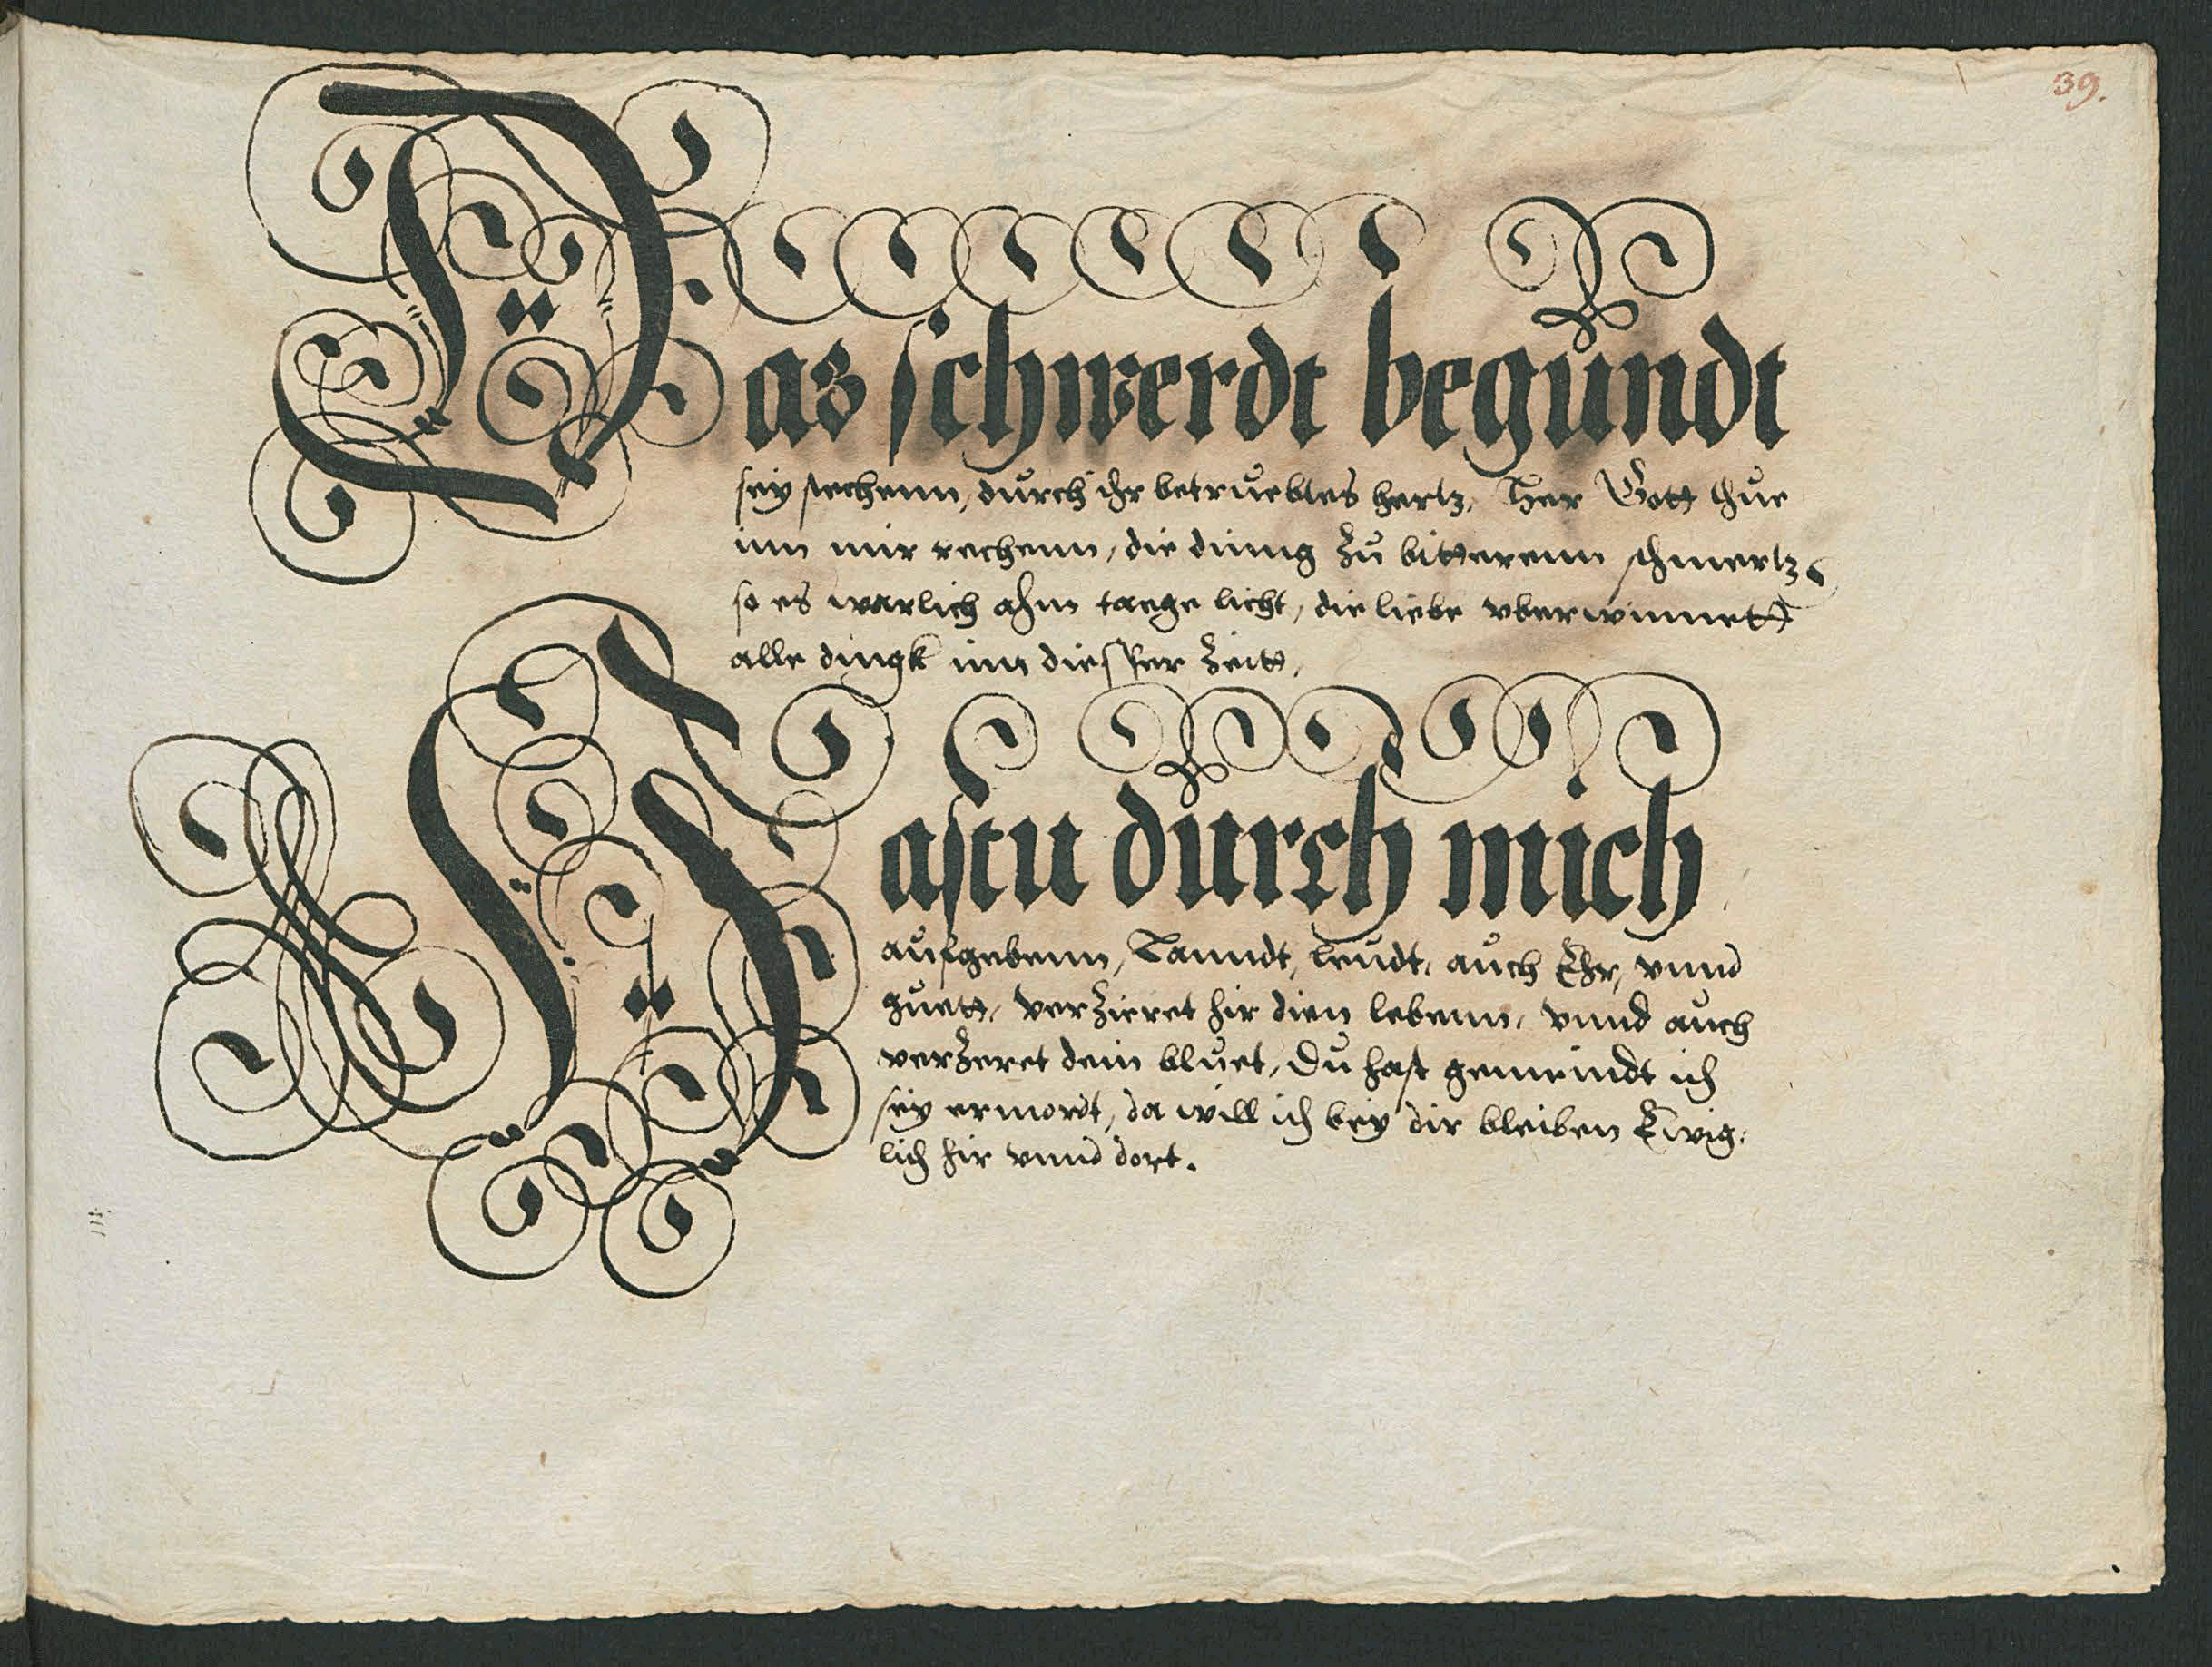 39.
Das schwerdt begundt
sey stechenn, durch ihr betruebtes hertz, Her Gott thue
inn mir rechenn, die dinng zu bitterenn schmertz,
so es warlich ahm taege licht, die liebe vberwinnett
alle dingk inn diesser Zeitt,
Hastu durch mich
aufgebenn, Lanndt, leudt, auch Ehr, vnnd
guett, verzieret hir dien lebenn, vnnd auch
verzeret dein bluet, Du hast gemeindt ich
sey ermordt, da will ich bey dir bleiben Ewig:
lich hir vnnd dort.